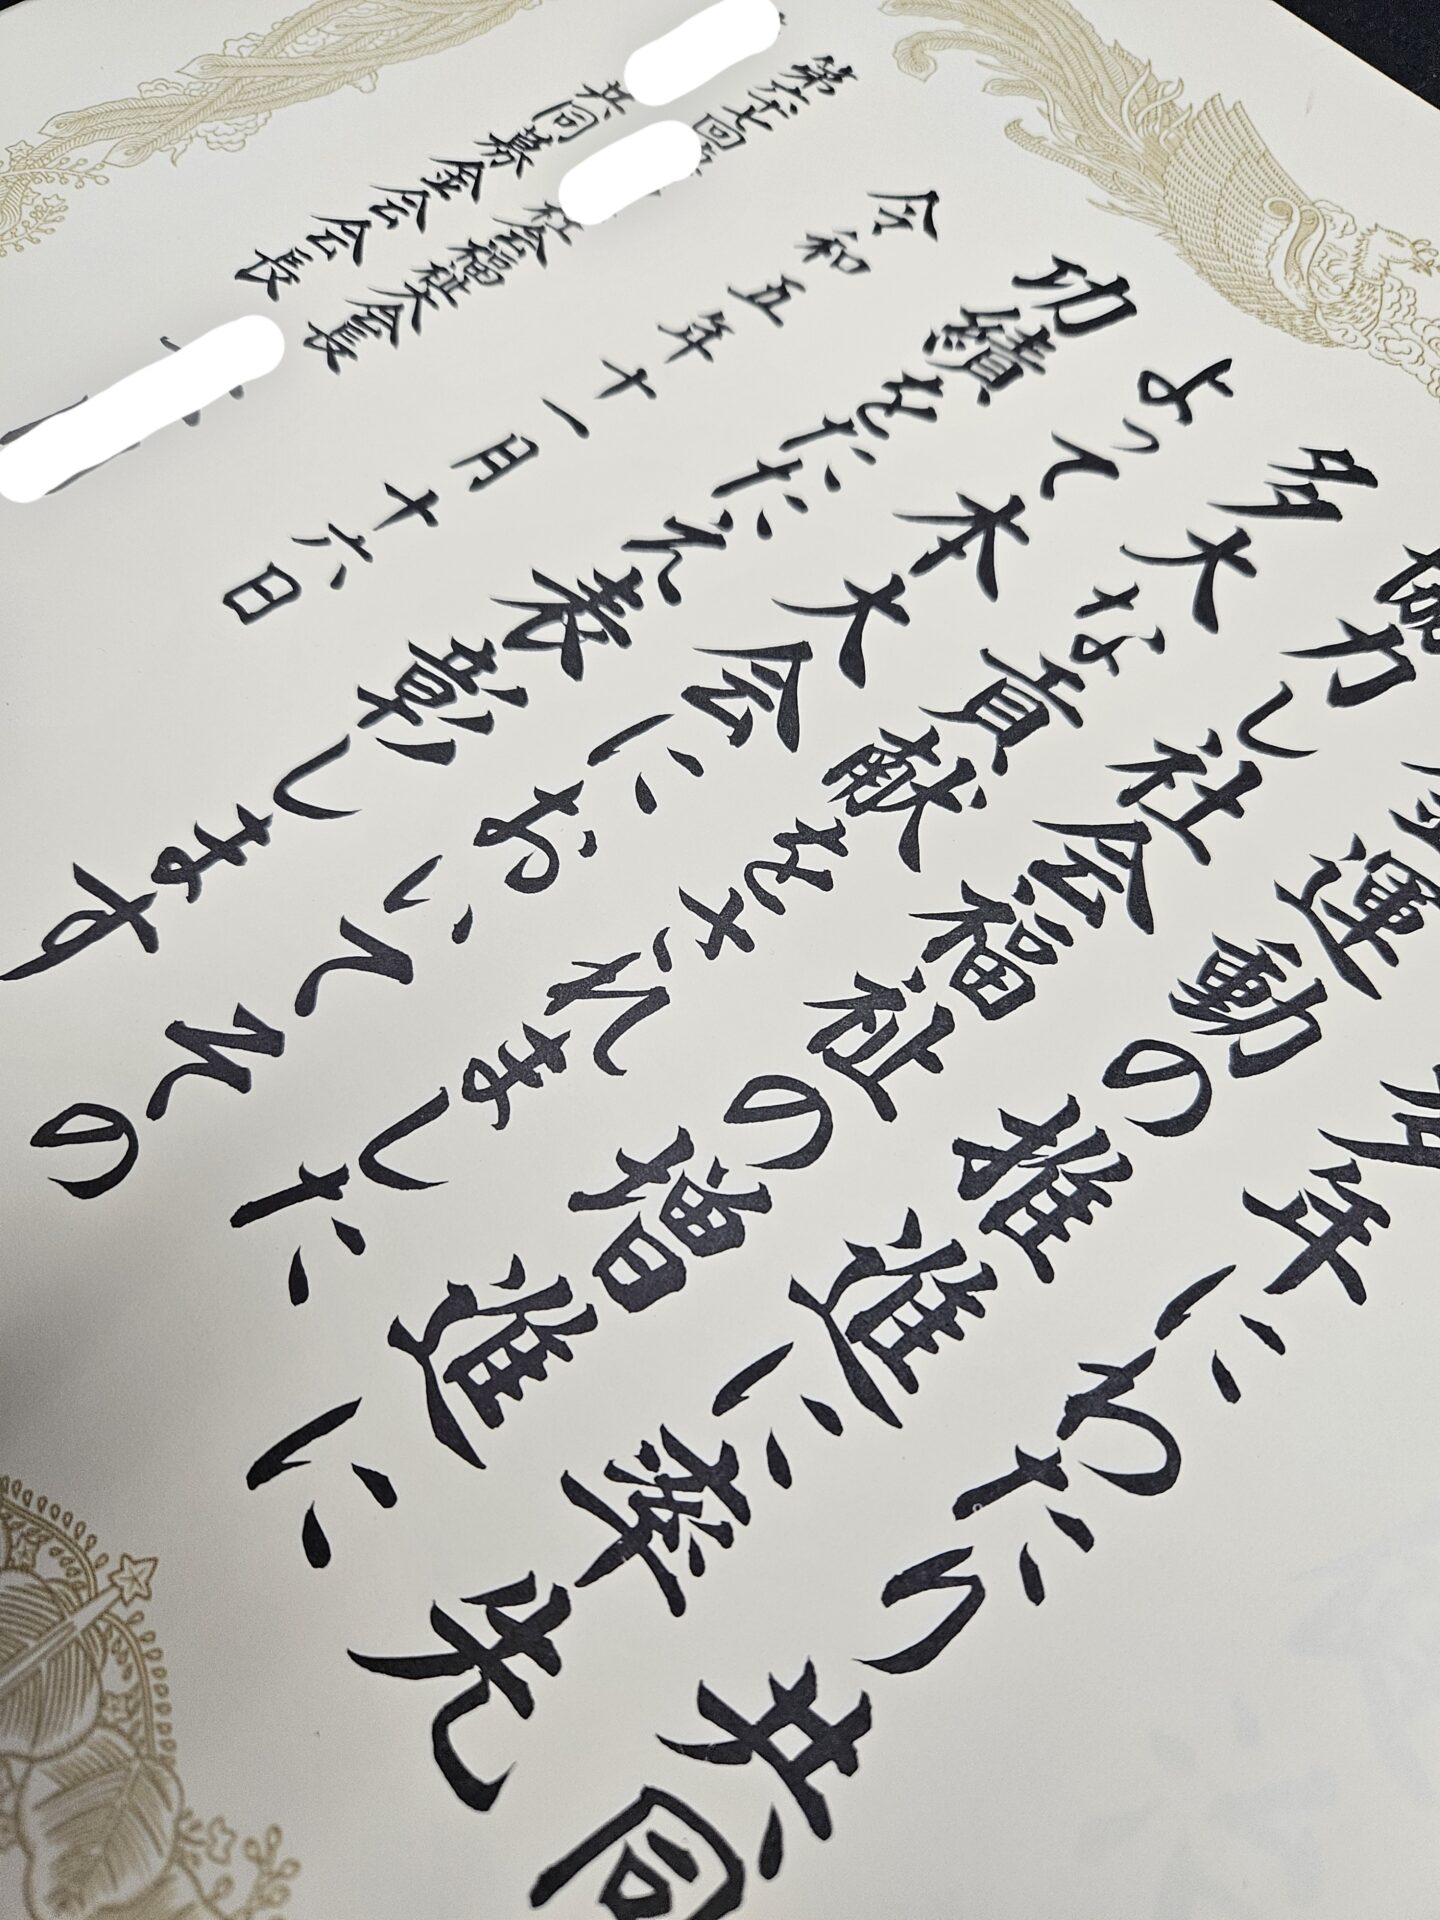 多年にわたり共同
運動の推進に率先
協力し社会福祉の増進に
多大な貢献をされました
よって本大会においてその
功績をたたえ表彰します
令和五年十一月十六日
第六十七回 社会福祉大会長
共同募金会会長